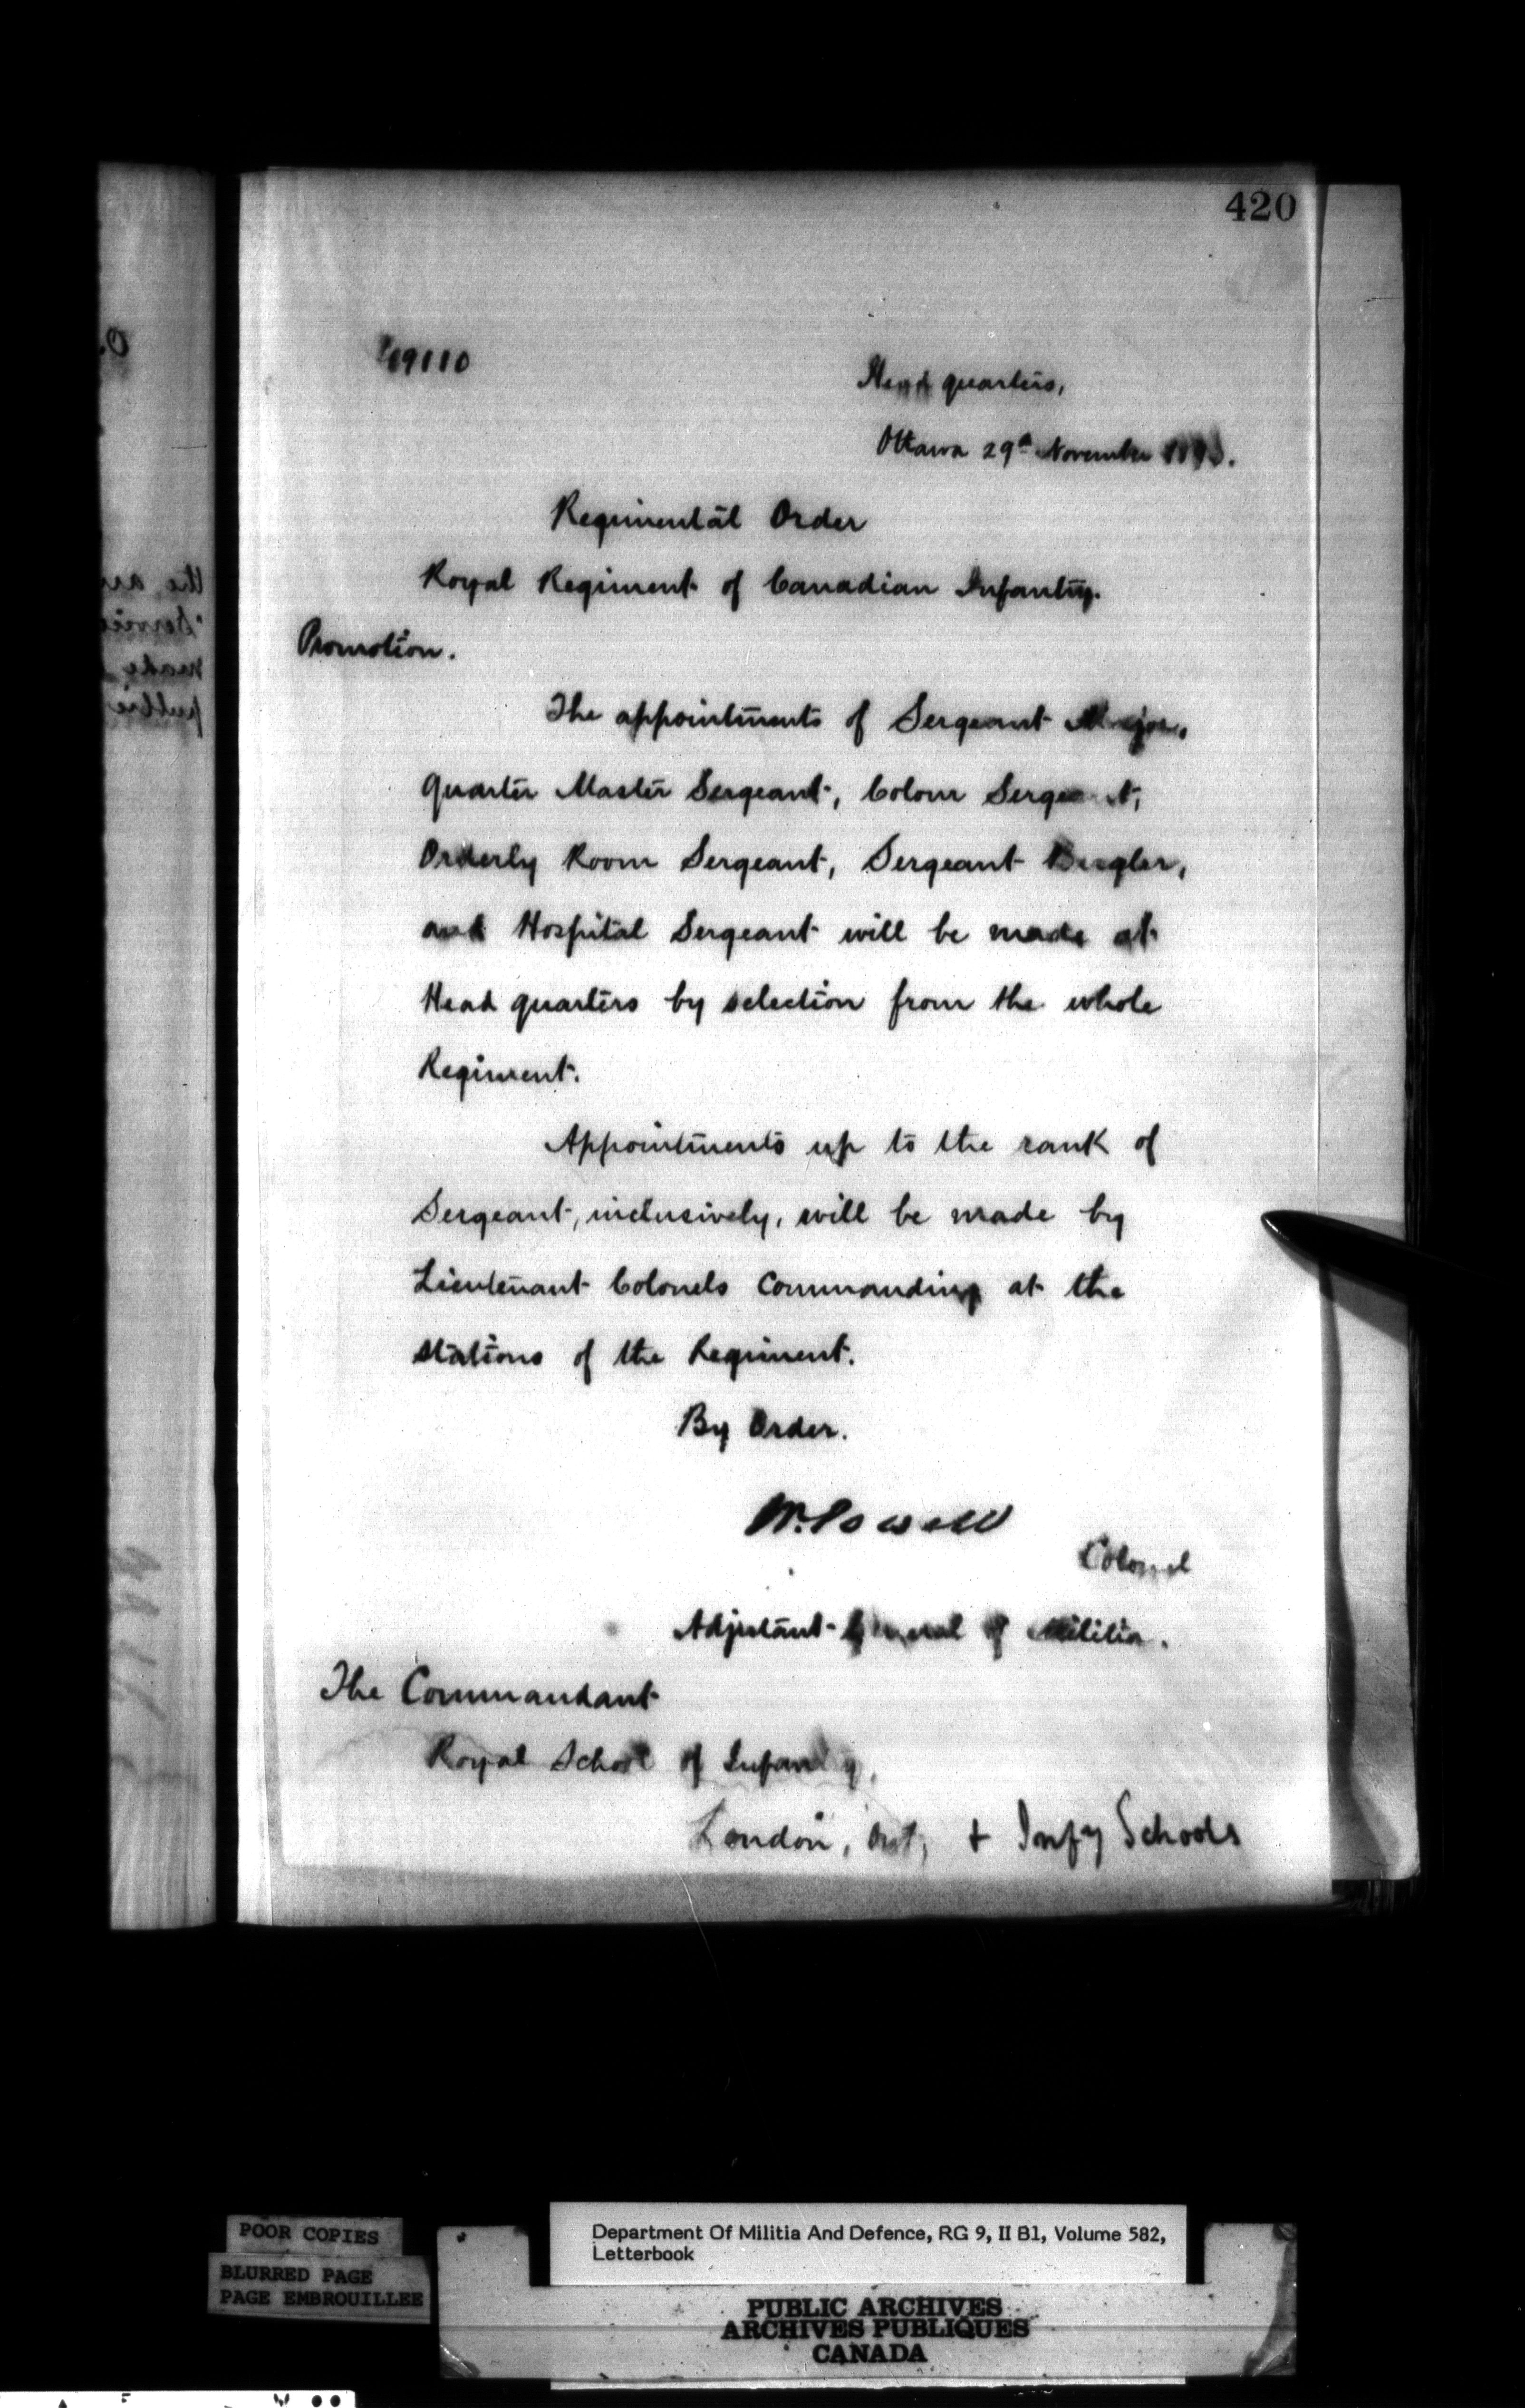 420
69110
Head quarters,
Ottawa 29th November 1893.
Regimental Order
Royal Regiment of Canadian Infantry.
Promotion.
The appointments of Sergeant Major,
Quarter Master Sergeant, Colour Sergeant,
Orderly Room Sergeant, Sergeant Bugler,
and Hospital Sergeant will be made at
Head quarters by selection from the whole
Regiment.
Appointments up to the rank of
Sergeant, inclusively, will be made by
Lieutenant Colonels Commanding at the
stations of the Regiment.
By Order.
W. Powell
Colonel
Adjutant General of Militia.
The Commandant
Royal School of Infantry,
London, Ont, + Infy Schools
POOR COPIES
BLURRED PAGE
PAGE EMBROUILLEE
Department Of Militia And Defence, RG 9, II B1, Volume 582,
Letterbook
PUBLIC ARCHIVES
ARCHIVES PUBLIQUES
CANADA